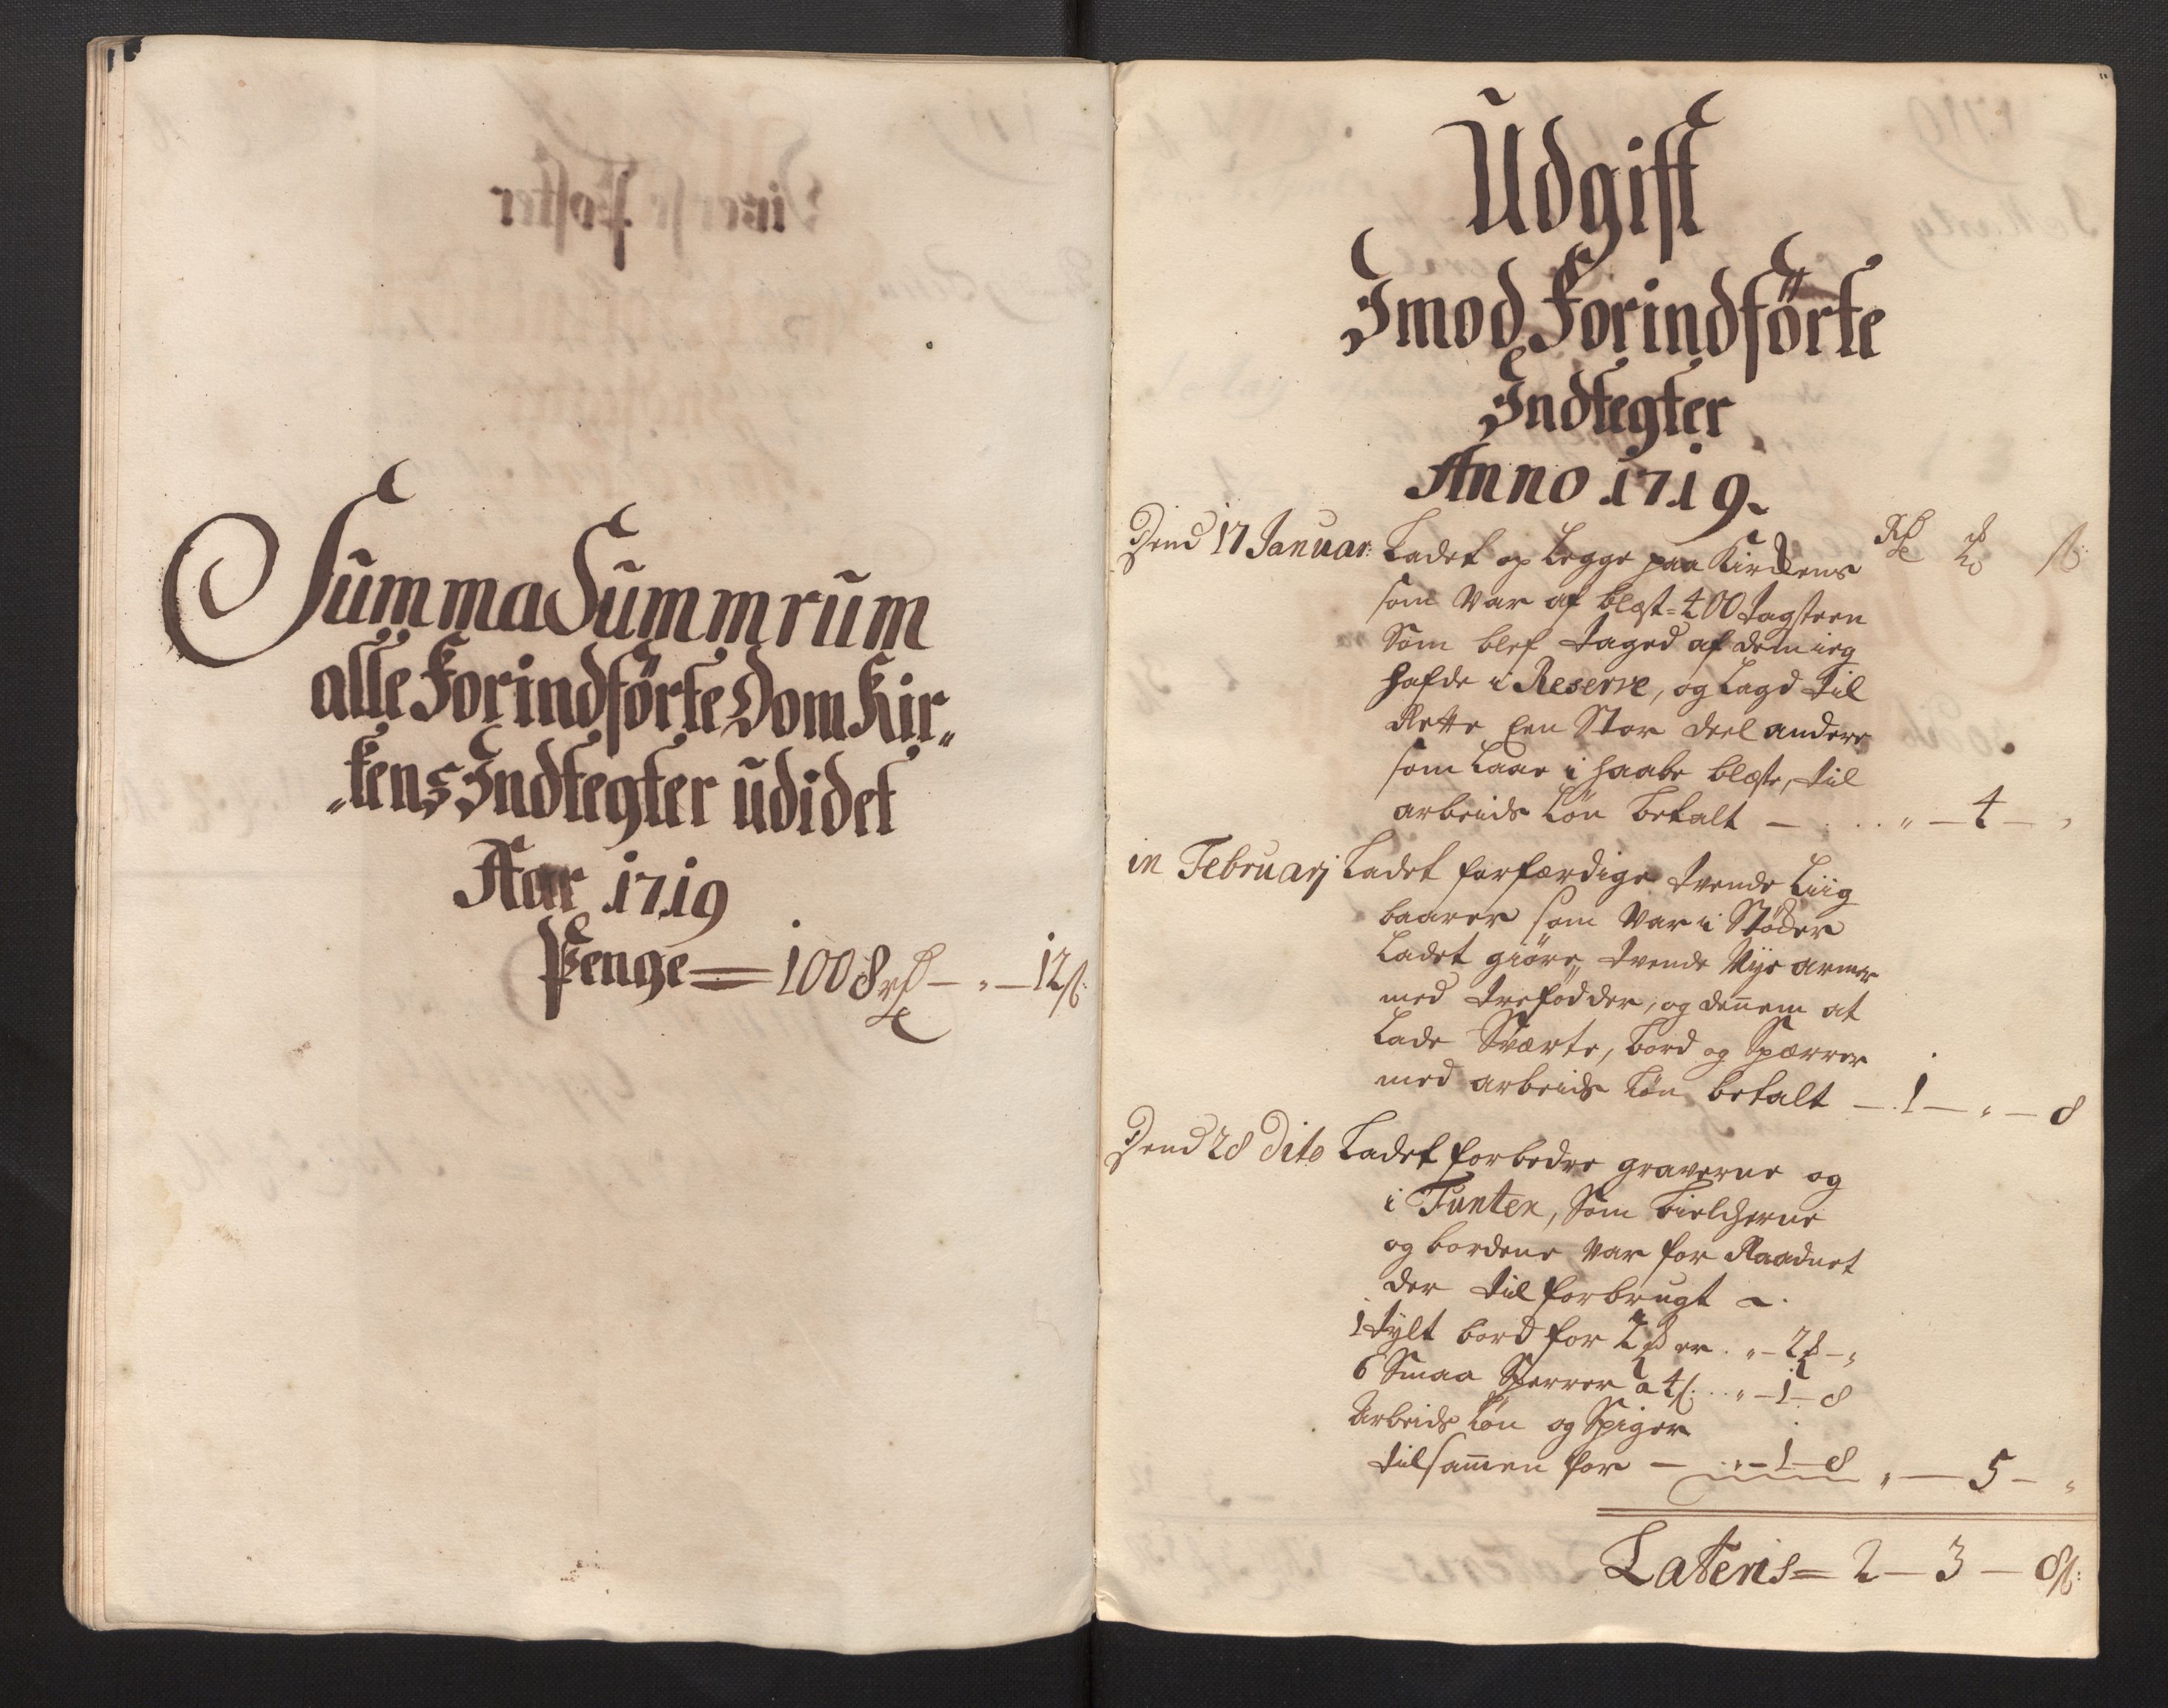 Summa Summrum
alle Forindførte Dom Kir„
„kens Indtegter udi det
Aar 1719
Penge = 1008 rd — „ — 12 ß:
Udgift
Imod Forindförte
Indtegter
Anno 1719.
Dend 17 Januar: Ladet op Legge paa Kirkens Rd ß
som var af blæst = 400 tagsteen
som blef taged af dem ieg
hafde i Reserve, og lagd til
Rette Een Stor deel andere
som laae i haabe blæste, til
arbeids Løn betalt — „ — 4 — „
in Februarj Ladet forfærdige tvende Liig
baarer som var i Støcker
Ladet giöre tvende Nye armer
med trefødder, og dennem at
Lade Sværte, bord og Spærrer
med arbeids Løn betalt — 1 — „ — 8
Dend 28 dito Ladet forbedre graverne og
i Funten, som bielcherne
og bordene var for Raadnet
der til forbrugt
1 tylt bord for er „ — 2 — „
6 Smaa Sperrer a 4 ß: „ — 1 — 8
Arbeids Løn og Spiger
tilsammen for — „ — 1 — 8 „ — 5 — „
Lateris = 2 — 3 — 8 ß: